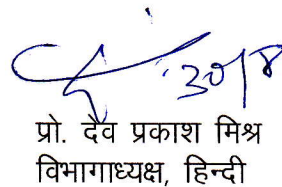 30/8
प्रो. देव प्रकाश मिश्र
विभागाध्यक्ष, हिन्दी